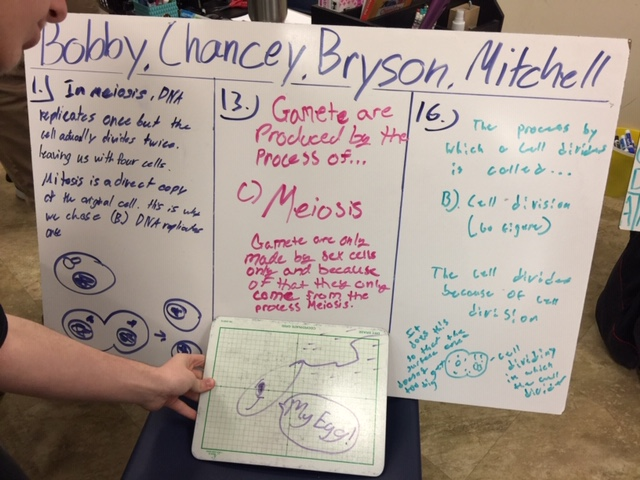 Bobby, Chancey, Bryson, Mitchell
1.) In meiosis, DNA
replicates once but the
cell actually divides twice.
leaving us with four cells.
Mitosis is a direct copy
of the original cell. this is why
we chose (B.) DNA replicates
one
13.) Gamete are
Produced by the
Process of...
C) Meiosis
Gamete are only
made by sex cells
only and because
of that they only
come from the
process Meiosis.
16.) The process by
which a cell divides
is called...
B). Cell division
(Go figure)
The cell divides
because of cell
division
It
does this
so that the
surface area
cell
dividing
in which
the cell
divides
My Eggs!